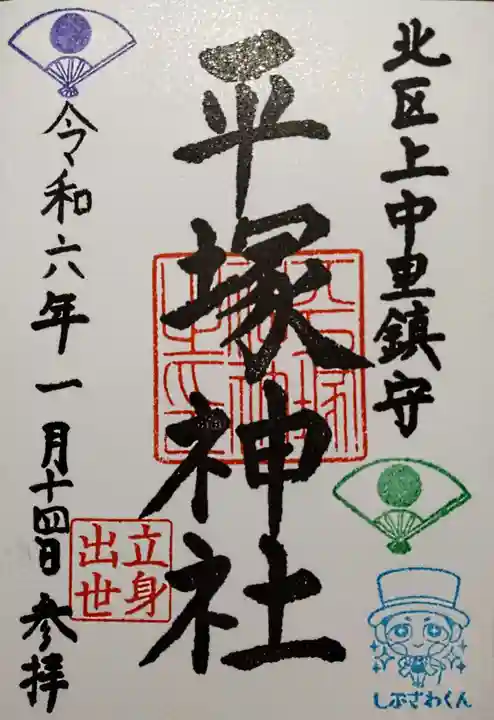 北区上中里鎮守
平塚神社
令和六年一月十四日参拝
立身
出世
しぶさわくん